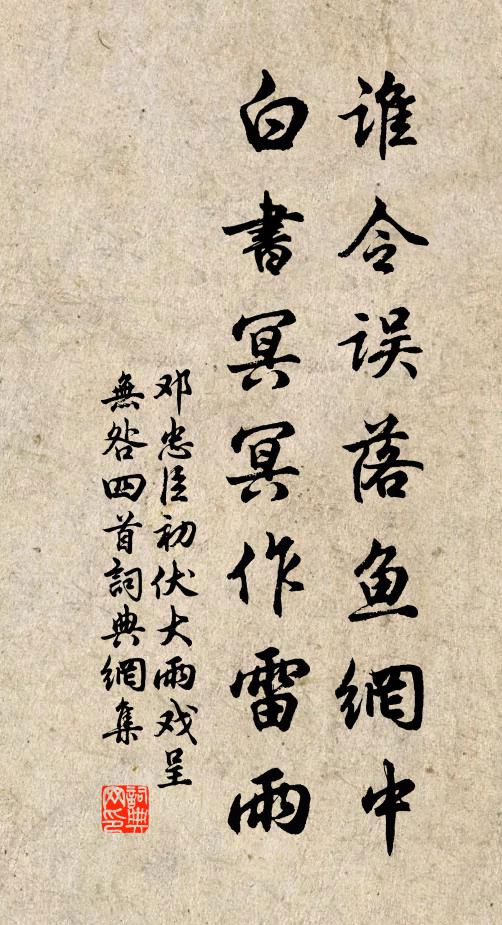 谁令误落鱼網中
白書冥冥作雷雨
邓忠臣初伏大雨戏呈
無咎四首詞典網集
詞典
网印